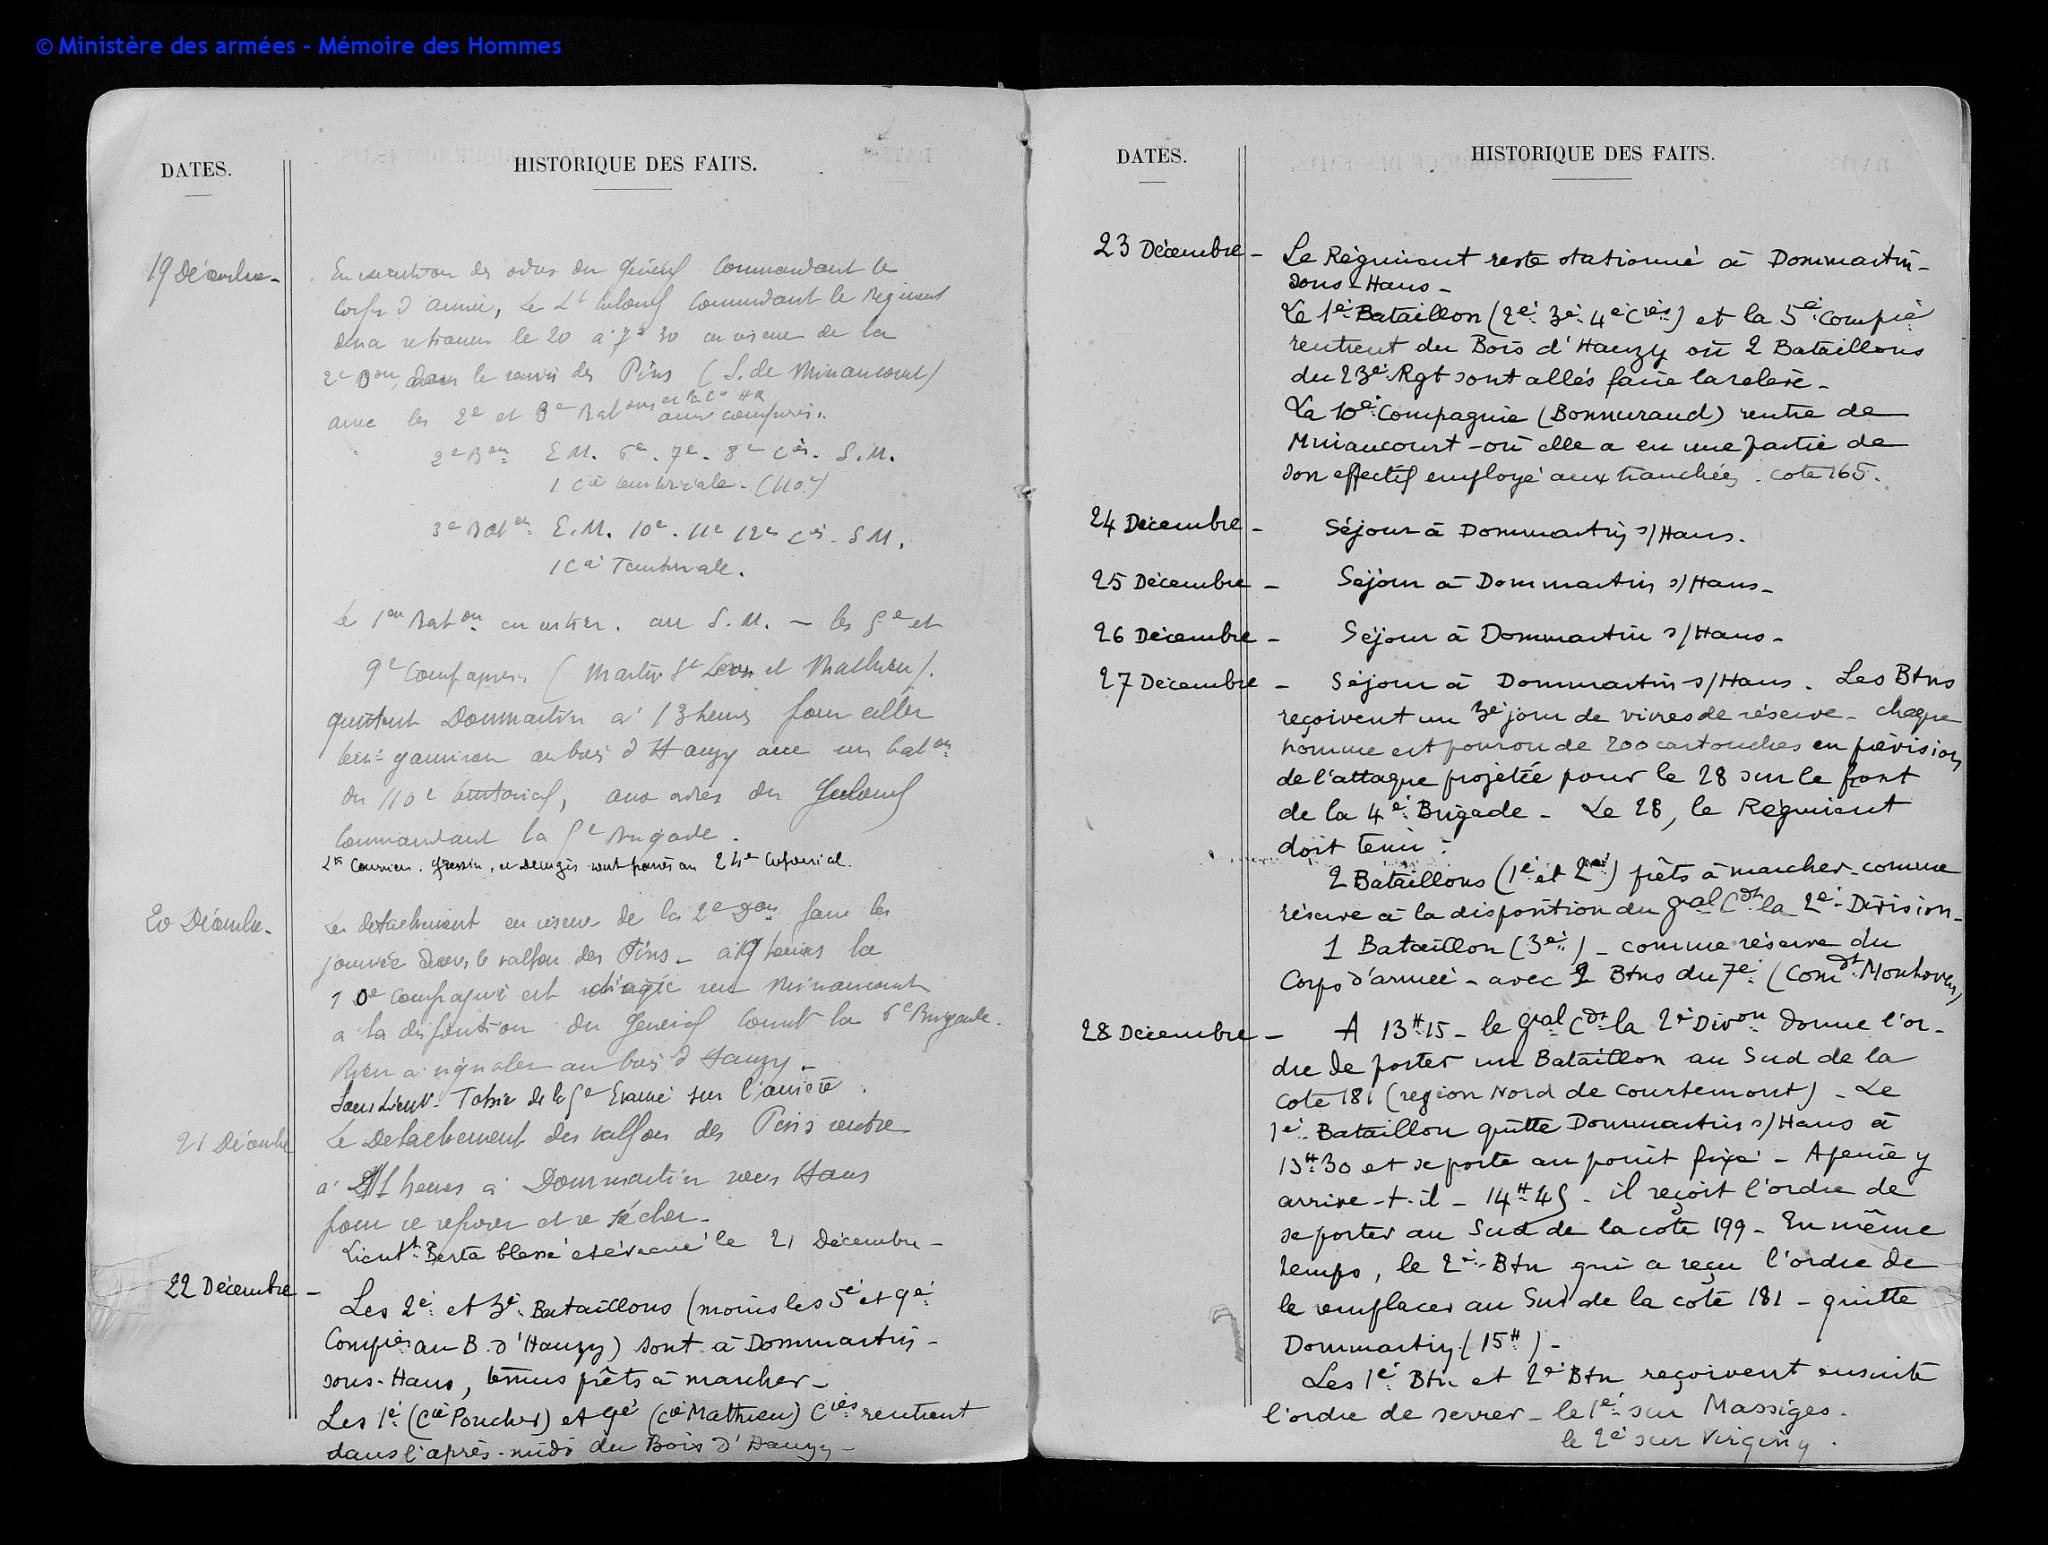 © Ministère des armées - Mémoire des Hommes
DATES.
HISTORIQUE DES FAITS.
19 Décembre -
En exécution des ordres du Général Commandant le
Corps d'armée, le Lt Colonel Commandant le Régiment
devra se trouver le 20 à 7h 30 en réserve de la
2e Don, dans le ravin des Pins (S. de Minaucourt)
avec les 2e et 3e Batons et la Cie HR ainsi composés.
2e Bon E.M. 6e. 7e. 8e Cies. S.M.
1 Cie territoriale. (110e)
3e Baton E.M. 10e. 11e 12e Cies. S.M.
1 Cie Territoriale.
Le 1er Baton en entier. au S.M. - les 5e et
9e Compagnies (Martin St Léon et Mathieu).
quittent Dommartin à 13 heures pour aller
tenir garnison au bois d'Hauzy avec un baton
du 110e territorial, aux ordres du Colonel
Commandant la 5e Brigade.
et Denigès sont passés au 24e Colonial.
20 Décembre.
Le détachement en réserve de la 2e Don passe la
journée dans le vallon des Pins - à heures la
10e Compagnie est dirigée sur Minaucourt
à la disposition du Général Comdt la 6e Brigade.
Rien à signaler au bois d'Hauzy -
Sous Lieut. de la 5e Evacué sur l'arrière.
21 Décembre
Le Détachement du vallon des Pins rentre
à heures à Dommartin sous Hans
pour se reposer et se sécher -
Lieutt Berta blessé et évacué le 21 Décembre -
22 Décembre -
Les 2e et 3e Bataillons (moins les 5e et 9e
Compies au B. d'Hauzy) sont à Dommartin -
sous-Hans, tenus prêts à marcher -
Les 1e (Cie Poucher) et 9e (Cie Mathieu) Cies rentrent
dans l'après-midi du Bois d'Hauzy -
DATES.
HISTORIQUE DES FAITS.
23 Décembre -
Le Régiment reste stationné à Dommartin -
sous-Hans -
Le 1e Bataillon (2e 3e 4e Cies) et la 5e Compie
rentrent du Bois d'Hauzy où 2 Bataillons
du 23e Rgt sont allés faire la relève -
La 10e Compagnie (Bonnuraud) rentre de
Minaucourt - où elle a eu une partie de
son effectif employé aux tranchées . cote 165.
24 Décembre -
Séjour à Dommartin s/Hans.
25 Décembre -
Séjour à Dommartin s/Hans -
26 Décembre -
Séjour à Dommartin s/Hans -
27 Décembre -
Séjour à Dommartin s/Hans . Les Btns
reçoivent un 3e jour de vivres de réserve - chaque
homme est pourvu de 200 cartouches en prévision
de l'attaque projetée pour le 28 sur le front
de la 4e Brigade - Le 28, le Régiment
doit tenir :
2 Bataillons (1e et 2e) prêts à marcher - comme
réserve à la disposition du Gal Cdt la 2e Division -
1 Bataillon (3e) - comme réserve du
Corps d'armée - avec 2 Btns du 7e (Comdt Monhoven)
28 Décembre -
A 13H15 - le Gal Cdt la 2e Divon donne l'or-
dre de porter un Bataillon au Sud de la
cote 181 (région Nord de Courtemont) - Le
1e Bataillon quitte Dommartin s/Hans à
13H30 et se porte au point fixé - A peine y
arrive-t-il - 14H45 - il reçoit l'ordre de
se porter au Sud de la cote 199 - En même
temps, le 2e Btn qui a reçu l'ordre de
le remplacer au Sud de la cote 181 - quitte
Dommartin (15H) -
Les 1e Btn et 2e Btn reçoivent ensuite
l'ordre de serrer - le 1e sur Massiges.
le 2e sur Virginy.